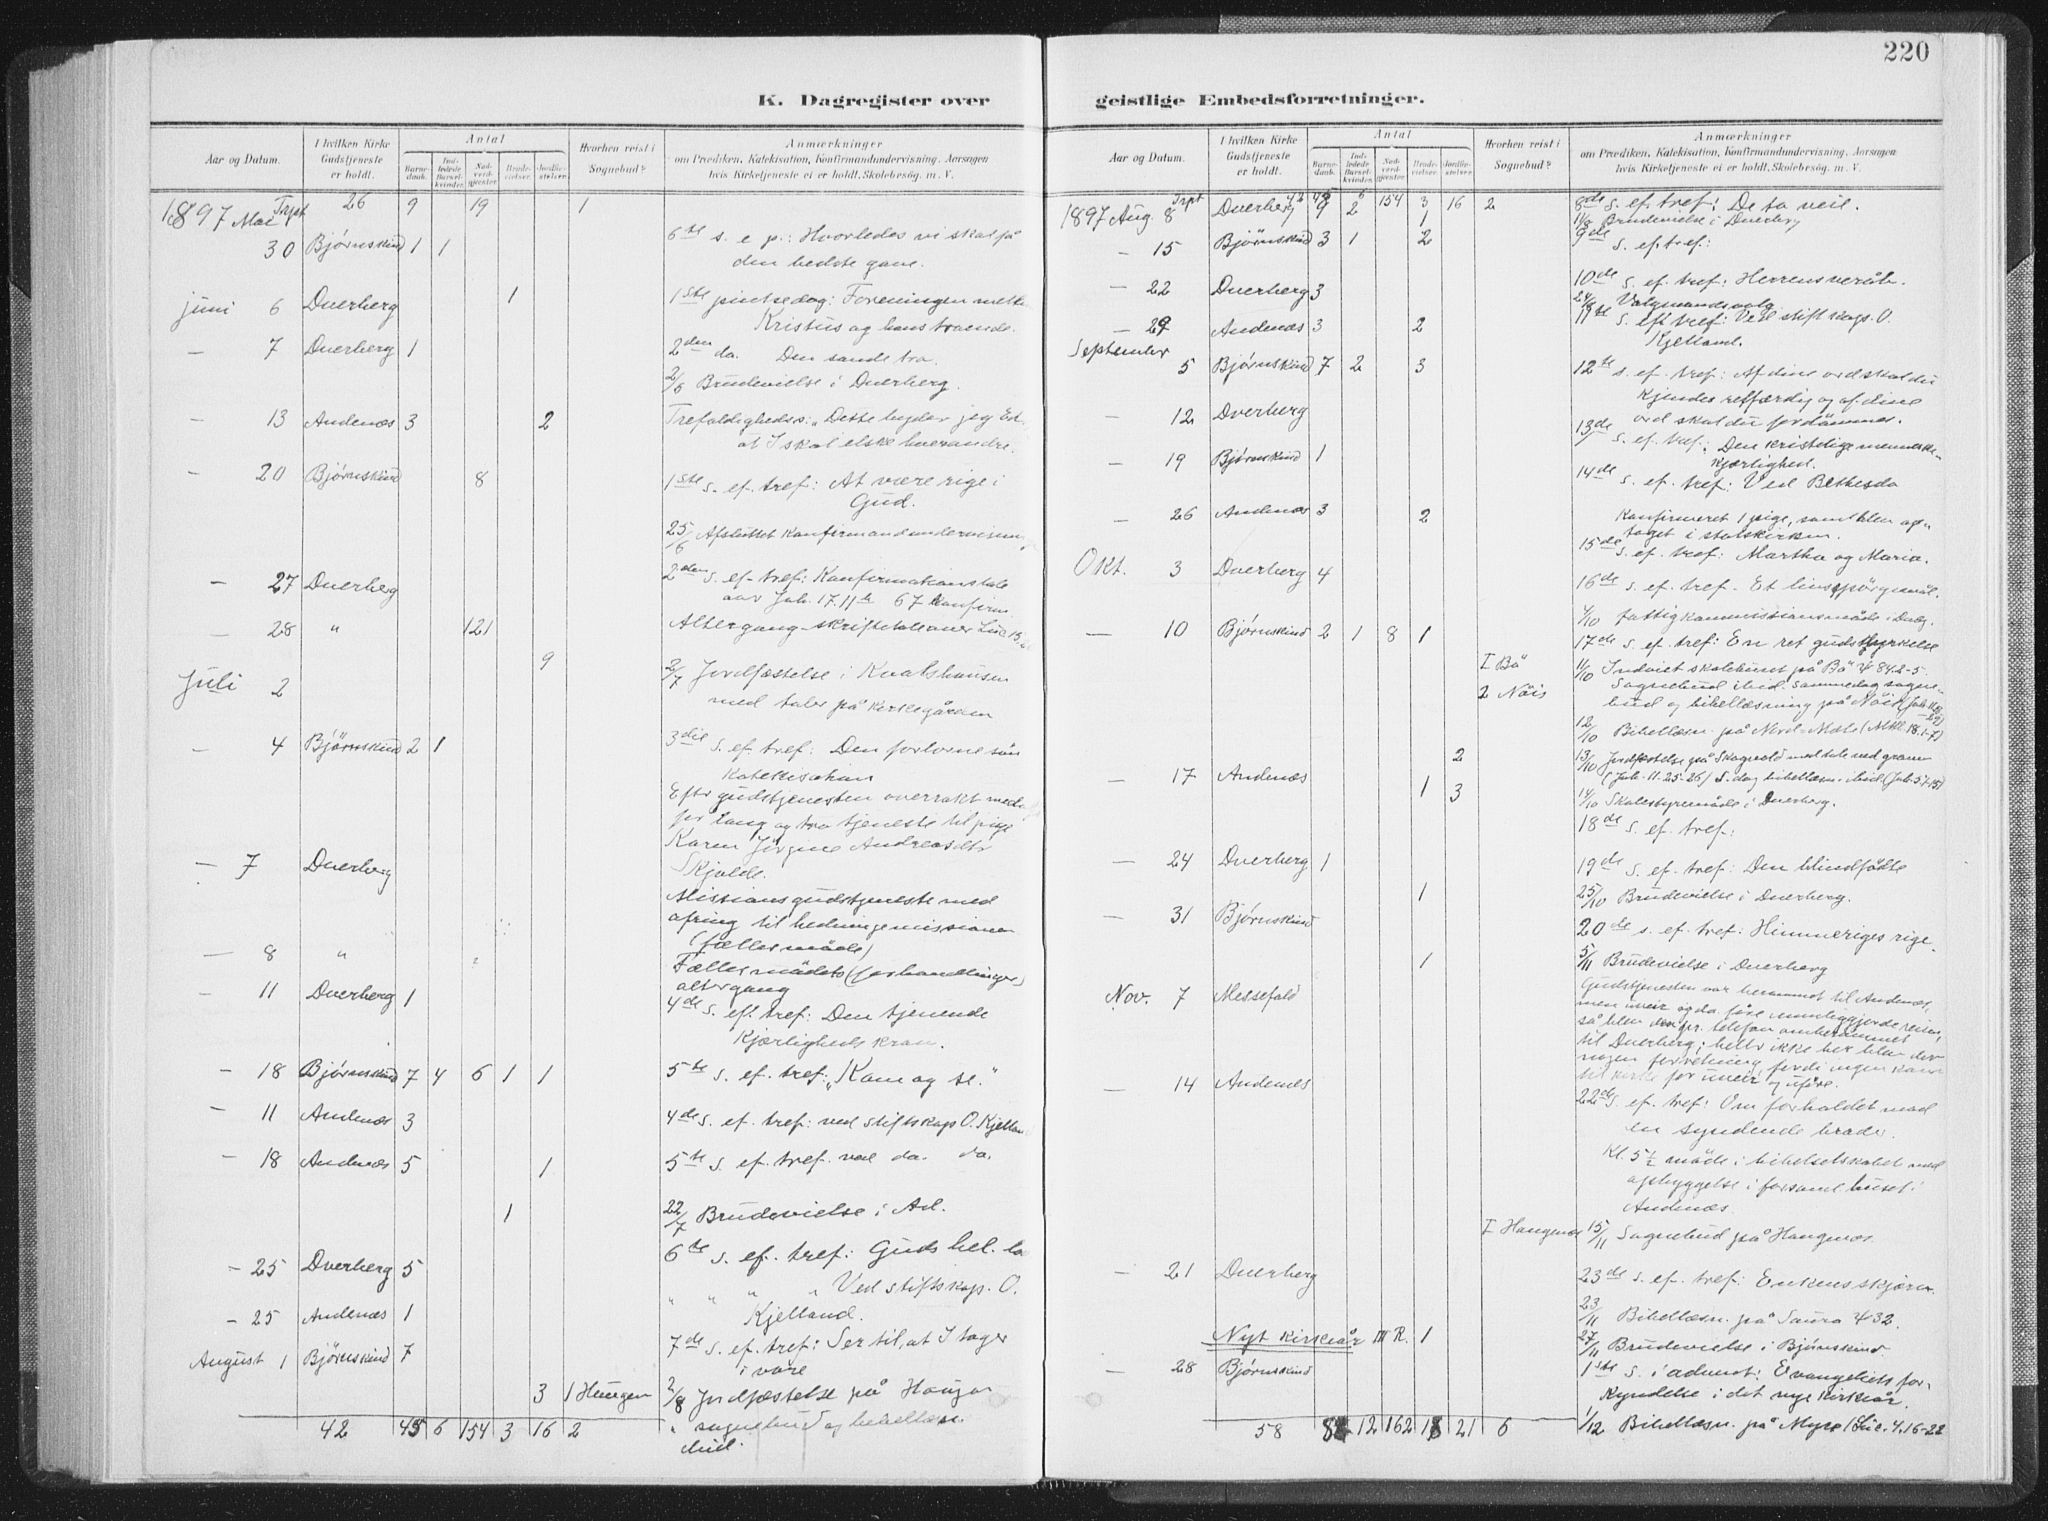 220
K. Dagregister over
geistlige Embedsforretninger.
Aar og Datum.
I hvilken Kirke Gudstjeneste er holdt.
Antal
Barnedaab.
Indledede Barselkvinder.
Nadverdgjester
Brudevielser.
Jordfæstelser.
Hvorhen reist i Sognebud?
Anmærkninger
om Prædiken, Katekisation, Konfirmandundervisning. Aarsagen
hvis Kirketjeneste ei er holdt, Skolebesøg. m. V.
1897 Mai Trpt 26 9 19 1
30 Bjørnskind 1 1 6te s. e p.: Hvorledes vi skal få
den bedste gave.
juni 6 Dverberg 1 1ste pintsedag: Foreningen mellem
Kristus og hans troende.
- 7 Dverberg 1 2den do. Den sande tro.
2/6 Brudevielse i Dverberg.
- 13 Andenæs 3 2 Trefoldigheds: "Dette byder jeg Eder
at I skal elske hverandre.
- 20 Bjørnskind 8 1ste s. ef. tref: At være rige i
Gud.
25/6 Afsluttet konfirmandundervisning
- 27 Dverberg 2den s. ef. tref: Konfirmationstale
over Joh. 17.11b 67 konfirm.
- 28 " 121 Altergang - skriftetale over Luc 15
9 2/7 Jordfæstelse i Kvalshausen
Juli 2 med taler på kirkegården
- 4 Bjørnskind 2 1 3die s. ef. tref: Den fortorne sön
Katekisation
Efter gudstjenesten overrakt medalje
for lang og tro tjeneste til pige
Karen Jörgine Andreasdtr
Skjolde.
- 7 Dverberg
Missionsgudstjeneste med
ofring til hedningemissionen
(fællesmøde)
- 8 " Fællesmødets (forhandlinger)
altergang
- 11 Dverberg 1 4de s. ef. tref: Den tjenende
Kjærligheds krav.
- 18 Bjørnskind 7 4 6 1 1 5te s. ef. tref: "Kom og se."
- 11 Andenæs 3 4de s. ef. tref: ved stiftskap. O. Kjelland
- 18 Andenæs 5 1 5te s. ef. tref. ved do. do.
1 22/7 Brudevielse i Ad.
- 25 Dverberg 5 6te s. ef. tref: Guds hel. lov
" " " " Ved stiftskap. O.
- 25 Andenæs 1 Kjelland.
August 1 Bjørnskind 7 7de s. ef. tref: Ser til, at I tager
i vare
3 1 Haugen 2/8 Jordfæstelse på Haugen
42 45 6 154 3 16 2 " sognebud og bibellæsn.
ibid.
Aar og Datum.
I hvilken Kirke Gudstjeneste er holdt.
Antal
Barnedaab.
Indledede Barselkvinder.
Nadverdgjester
Brudevielser.
Jordfæstelser.
Hvorhen reist i Sognebud?
Anmærkninger
om Prædiken, Katekisation, Konfirmandundervisning. Aarsagen
hvis Kirketjeneste ei er holdt, Skolebesøg. m. V.
Trpt 42 45 6 154 3 16 2
1897 Aug. 8 Dverberg 9 2 8de s. ef. tref: De to veie.
1 Brudevielse i Dverberg
- 15 Bjørnskind 3 1 2 9de s. ef. tref:
- 22 Dverberg 3 10de s. ef. tref: Herrens veråb.
24/8 Valgmandsvalg
- 29 Andenæs 3 2 11te s. eft tref: Ved stiftskap. O.
Kjelland.
September
5 Bjørnskind 7 2 3 12te s. ef. tref: Af dine ord skal du
kjendes retfærdig og af dine
ord skal du fordømmes.
- 12 Dverberg 13de s. ef. tref: Den kristelige menneske-
kjærlighed.
- 19 Bjørnskind 1 14de s. ef. tref: Ved Bethesda
- 26 Andenæs 3 2 Konfirmeret 1 pige, som blev op-
taget i statskirken.
15de s. ef. tref: Martha og Maria.
Okt. 3 Dverberg 4 16de s. ef. tref. Et livsspørgsmål.
4/10 fattigkommissionsmøde i Dvbg.
- 10 Bjørnskind 2 1 8 1 17de s. ef. tref: En ret gudsdyrkelse
I Bö 11/10 Indviet skolehuset på Bö ψ 84.2-5.
Sognebud ibid. samme dag sogne-
2 Nöis bud og bibellæsning på Nöis
12/10 Bibellæsn. på Nord-
2 13/10 Jordfæstelse på Skogvold med tale ved graven
(Joh. 11.25-26) S. dag bibellæsn. ibid
- 17 Andenæs 1 3 14/10 Skolestyremøde i Dverberg.
18de s. ef. tref:
- 24 Dverberg 1 19de s. ef. tref: Den blindfødte
1 25/10 Brudevielse i Dverberg.
- 31 Bjørnskind 20de s. ef. tref: Himmeriges rige.
1 5/11 Brudevielse i Dverberg
Nov. 7 Messefald Gudstjenesten var berammet til Andenæs,
men uveir og da. føre umuliggjorde reisen,
så blev den pr. telefon omberammet
til Dverberg; heller ikke her blev der
nogen forretning, fordi ingen kom
til kirke for uveir og uføre.
- 14 Andenæs 22de s. ef. tref: Om forholdet mod
en syndende broder.
Kl. 5½ møde i bibelselskabet med
opbyggelse i forsaml.huset i
Andenæs.
I Haugnæs 15/11 Sognebud på Haugnæs.
- 21 Dverberg 23de s. ef. tref: Enkens skjærv.
23/11 Bibellæsn. på Saura ψ 32.
Nyt kirkeår III R. 1 27/11 Brudevielse i Bjørnskind
- 28 Bjørnskind 1ste s. i advent: Evangeliets for-
kyndelse i det nye kirkeår.
58 84 12 162 18 21 6 1/12 Bibellæsn. på Myre (Luc. 4.16-22